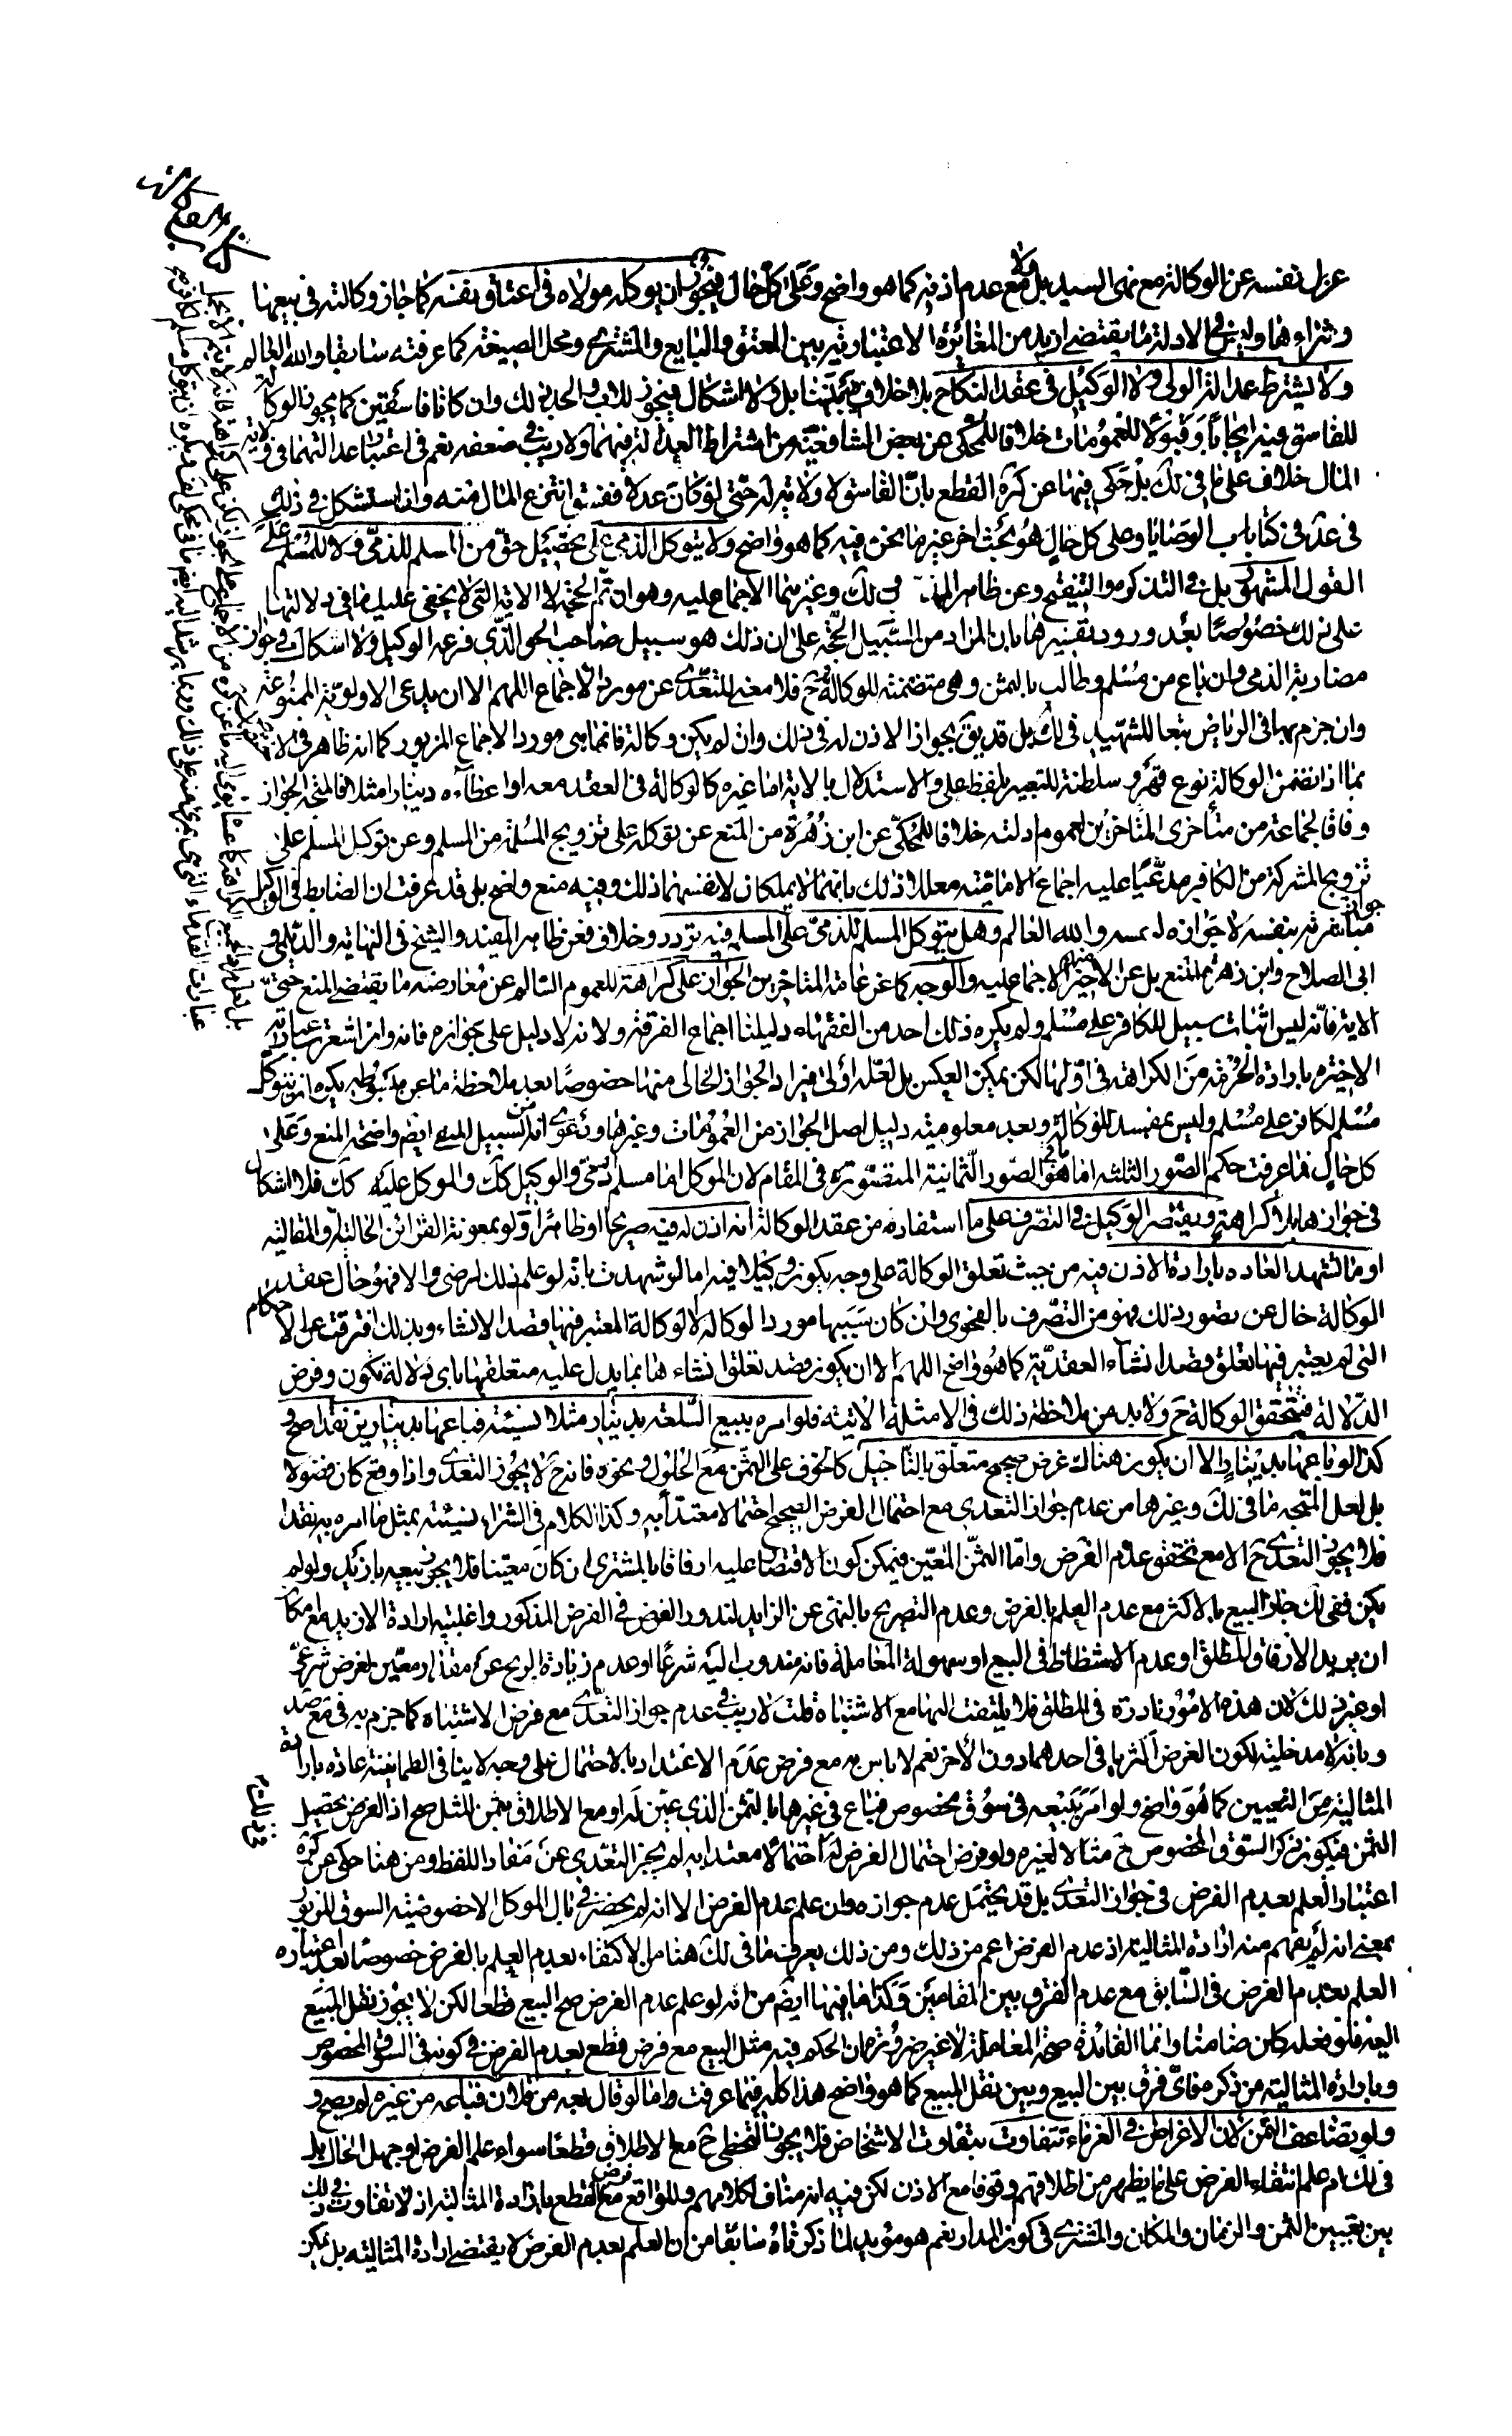 عزل نفسه عن الوكالة مع نهى السيد بل ولا مع عدم اذنه كما هو واضح وعلى كل حال فيجوز ان يوكله مولاه فى اعتاق نفسه كما جاز وكالته فى بيعها
وشراءها وليس فى الادلة ما يقتضى ازيد من المغائرة الاعتبارية بين المعتق والبايع والمشترى ومحل الصيغة كما عرفته سابقا والله العالم
ولا يشترط عدالة الولى ولا الوكيل فى عقد النكاح بلا خلاف بيننا بل ولا اشكال فيجوز للاب والجد ذلك وان كانا فاسقين كما يجوز الوكالة
للفاسق فيه ايجابا وقبولا للعمومات خلافا للمحكى عن بعض الشافعية من اشتراط العدالة فيهما ولا ريب فى ضعفه نعم فى اعتبار عدالتهما فى ولاية
المال خلاف على ما فى لك بل حكى فيها عن كرة القطع بان الفاسق لا ولاية له حتى لو كان عدلا ففسق انتزع المال منه وانا استشكل فى ذلك
فى عد فى كتاب الوصايا وعلى كل حال هو بحث اخر غير ما نحن فيه كما هو واضح ولا يتوكل الذمى على تحصيل حق من المسلم للذمى ولا للمسلم على
القول المشهور بل فى التذكرة والتنقيح وعن ظاهر المهذب لك وغيرهما الاجماع عليه وهو ان تم الحجة لا الاية التى لا يخفى عليك ما فى دلالتها
على ذلك خصوصا بعد ورود تفسيرها بان المراد من السبيل الحجة على ان ذلك هو سبيل صاحب الحق الذى فرعه الوكيل ولا اشكال فى جواز
مضاربة الذمى وان باع من مسلم وطالب بالثمن وهى متضمنة للوكالة فلا معنى للتعدى عن مورد الاجماع اللهم الا ان يدعى الاولوية الممنوعة
وان جزم بها فى الرياض تبعا للشهيد فى لك بل قد يق بجواز الاذن له فى ذلك وان لم يكن وكالة فانما هى مورد الاجماع المزبور كما ان ظاهر
مما اذا تضمن الوكالة نوع قهر وسلطنة للتعبير بلفظ على والاستدلال بالاية اما غيره كالوكالة فى العقد معه او اعطاءه دينارا مثلا فالمتجه الجواز
وفاقا لجماعة من متأخرى المتاخرين لعموم ادلته خلافا للمحكى عن ابن زهرة من المنع عن توكله على تزويج المسلمة من المسلم وعن توكيل المسلم على
تزويج المشركة من الكافر مدعيا عليه اجماع الامامية معللا ذلك بانهما لا يملكان لانفسهما ذلك وفيه منع واضح بل قد عرفت ان الضابط فى الوكيل جواز
مباشرته بنفسه لا جوازه لنفسه والله العالم وهل يتوكل المسلم للذمى على المسلم فيه تردد وخلاف فعن ظاهر المفيد والشيخ فى النهاية والديلمى و
ابى الصلاح وابن زهرة المنع بل عن الاخير الاجماع عليه والوجه كما عن عامة المتاخرين الجواز على كراهة للعموم السالم عن معارضة ما يقتضى المنع حتى
الاية فانه ليس اثبات سبيل للكافر على مسلم ولم يكره ذلك احد من الفقهاء دليلنا اجماع الفرقة ولانه لا دليل على جوازه فانه وان اشعرت عبارته
الاخيره بارادة الحرمة من الكراهة فى اولها لكن يمكن العكس بل لعله اولى فيراد الجواز الخالى منها خصوصا بعد ملاحظة ما عن مبسوطه يكره ان يتوكل
مسلم لكافر على مسلم وليس بمفسد للوكالة وبعد معلومية دليل اصل الجواز من العمومات وغيرها ودعوى انه من السبيل المنفى ايضا واضحة المنع وعلى
كل حال فما عرفت حكم الصور الثلثة اما باقى الصور الثمانية المتصورة فى المقام لان الموكل اما مسلم او ذمى والوكيل كك والموكل عليه كك فلا اشكال
فى جوازها بلا كراهة ويقتصر الوكيل فى التصرف على ما استفاده من عقد الوكالة انه اذن له فيه صريحا او ظاهرا ولو بمعونة القرائن الحالية والمقالية
او ما تشهد العاده بارادة الاذن فيه من حيث تعلق الوكالة على وجه يكون وكيلا فيه اما لو شهدت بانه لو علم ذلك لرضى والا فهو حال عقد
الوكالة خال عن تصور ذلك فهو من التصرف بالفحوى وان كان سببها مورد الوكالة لا الوكالة المعتبر فيها قصد الانشاء وبذلك افترقت عن الاحكام
التى لم يعتبر فيها تعلق قصد انشاء العقدية كما هو واضح اللهم الا ان يكون قصد تعلق انشاءها بما يدل عليه متعلقها باى دلالة تكون وفرض
الدلالة فيتحقق الوكالة ح ولا بد من ملاحظة ذلك فى الامثلة الاتية فلو امره ببيع السلعة بدينار مثلا نسيئة فباعها بدينارين نقدا صح و
كذا لو باعها بدينار الا ان يكون هناك غرض صحيح متعلق بالتاجيل كالخوف على الثمن مع الحلول ونحوه فانه ح لا يجوز التعدى واذا وقع كان فضولا
بل لعل المتجه ما فى لك وغيرها من عدم جواز التعدى مع احتمال الغرض الصحيح احتمالا معتدا به وكذا الكلام فى الشراء نسيئة بمثل ما امره به نقدا
فلا يجوز التعدى ح الا مع تحقق عدم الغرض واما الثمن المعين فيمكن كون الاقتصار عليه ارفاقا بالمشترى ان كان معينا فلا يجوز بيعه بازيد ولو لم
يكن ففى لك جاز البيع بالاكثر مع عدم العلم بالغرض وعدم التصريح بالنهى عن الزايد لندور الغرض فى الفرض المذكور واغلبية ارادة الازيد مع امكان
ان يريد الارفاق المطلق او عدم الاشتطاط فى البيع او سهولة المعاملة فانه مندوب اليه شرعا او عدم زيادة الربح عن مقدار معين لغرض شرعى
او غير ذلك لان هذه الامور نادرة فى المطلق فلا يلتفت اليها مع الاشتباه قلت لا ريب فى عدم جواز التعدى مع فرض الاشتباه كما جزم به فى مع صد
وبانه لا مدخلية لكون الغرض اكثريا فى احدهما دون الاخر نعم لا باس به مع فرض عدم الاعتداد بالاحتمال على وجه لا ينافى الطمانينة عادة بارادة
المثالية من التعيين كما هو واضح ولو امر ببيعه فى سوق مخصوص فباع فى غيرها بالثمن الذى عين له او مع الاطلاق بثمن المثل صح اذ الغرض تحصيل
الثمن فيكون ذكر السوق المخصوص ح مثالا لغيره ولو فرض احتمال الغرض له احتمالا معتدا به لم يجز التعدى عن مفاد اللفظ ومن هنا حكى عن كرة
اعتبار العلم بعدم الغرض فى جواز التعدى بل قد يحتمل عدم جوازه وان علم عدم الغرض الا انه لم يحضر فى بال الموكل الا خصوصية السوق المزبور
بمعنى انه لم يفهم منه ارادة المثالية اذ عدم الغرض اعم من ذلك ومن ذلك يعرف ما فى لك هنا من الاكتفاء بعدم العلم بالغرض خصوصا بعد اعتباره
العلم بعدم الغرض فى السابق مع عدم الفرق بين المقامين وكذا ما فيها ايضا من انه لو علم عدم الغرض صح البيع قطعا لكن لا يجوز نقل المبيع
اليه فلو فعله كان ضامنا وانما الفائدة صحة المعاملة لا غير ضرورة ان الحكم فيه مثل البيع مع فرض قطع بعدم الغرض فى كونه فى السوق المخصوص
وبارادة المثالية من ذكره فاى فرق بين البيع وبين نقل المبيع كما هو واضح هذا كله فيما عرفت واما لو قال بعه من فلان فباعه من غيره لم يصح و
ولو تضاعف الثمن لان الاغراض فى الغرماء تتفاوت بتفاوت الاشخاص فلا يجوز التخطى ح مع الاطلاق قطعا سواء علم الغرض او جهل الحال بل
فى لك ام علم انتفاء الغرض على ما يظهر من اطلاقهم وقوفا مع الاذن لكن فيه انه مناف لكلامهم وللواقع مع فرض القطع بارادة المثالية اذ لا تفاوت فى ذلك
بين تعيين الثمن والزمان والمكان والمشترى فى كون المدار نعم هو مؤيد لما ذكرناه سابقا من ان العلم بعدم الغرض لا يقتضى ارادة المثالية بل يمكن